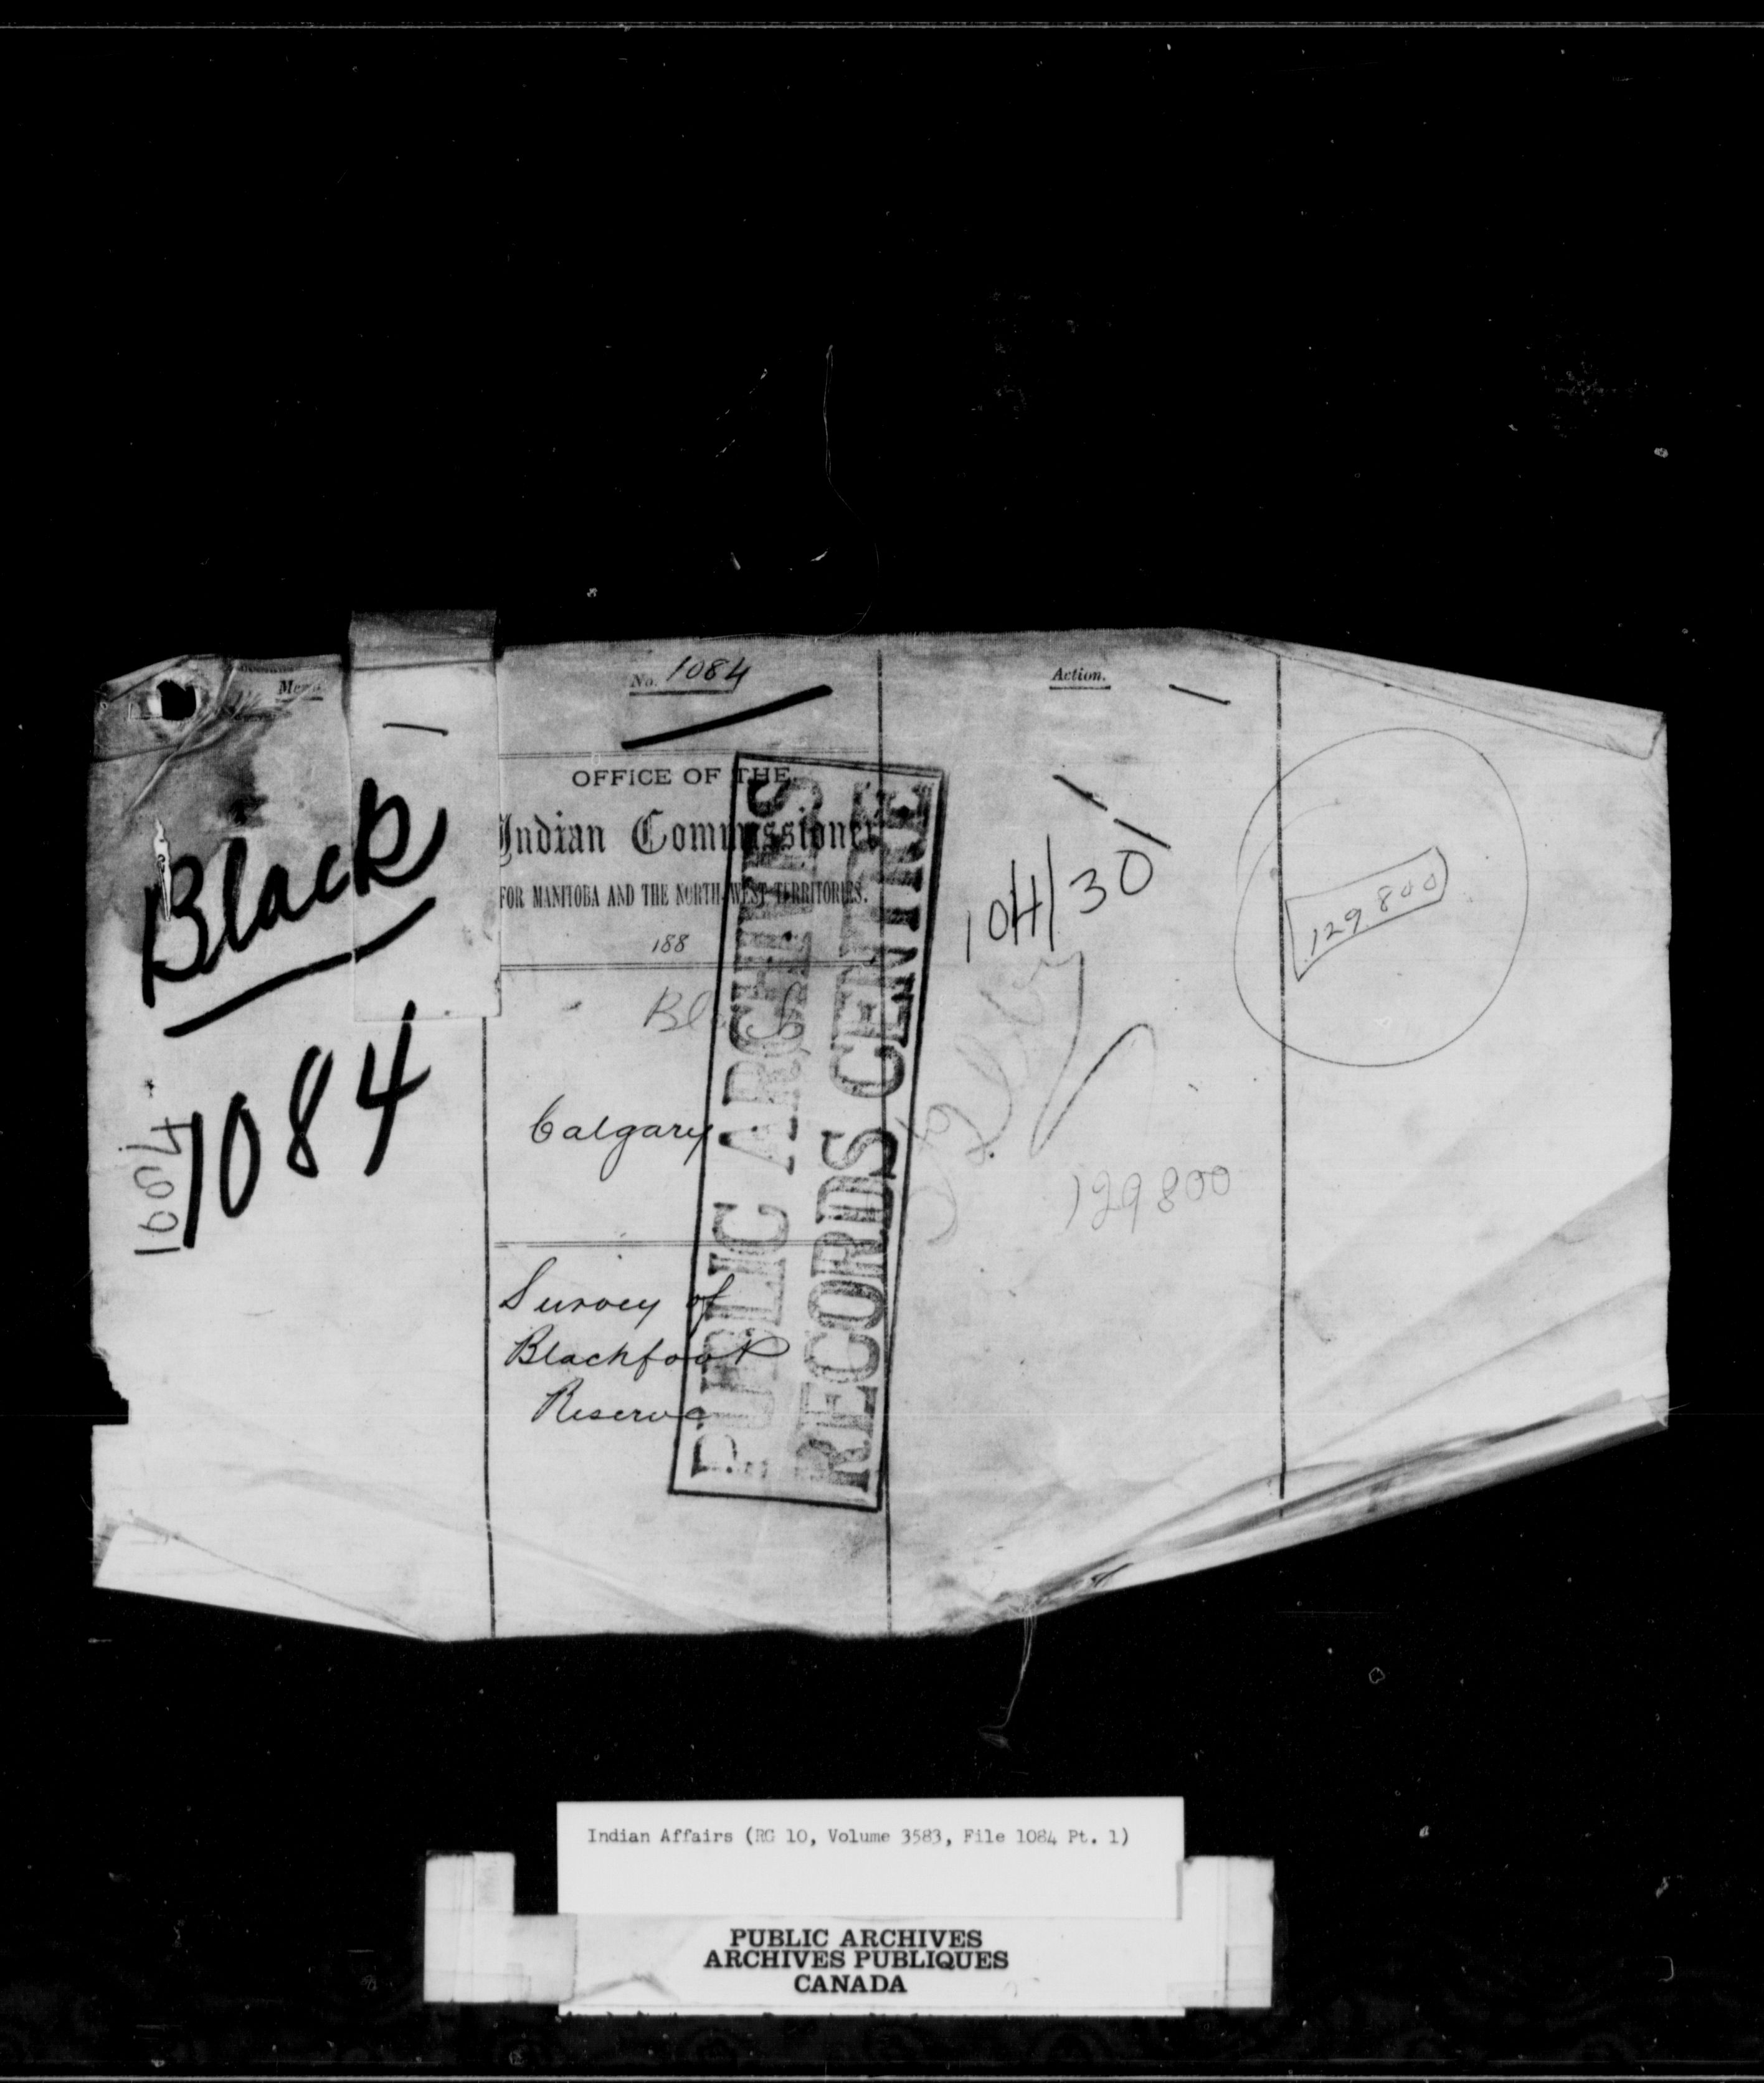 Memo.
Black
1084
No. 1084
OFFICE OF THE
Indian Commissioner
FOR MANITOBA AND THE NORTH-WEST TERRITORIES.
188
Calgary
Survey of
Blackfoot
Reserve
PUBLIC ARCHIVES
RECORDS CENTRE
Action.
129800
129800
Indian Affairs (RG 10, Volume 3583, File 1084 Pt. 1)
PUBLIC ARCHIVES
ARCHIVES PUBLIQUES
CANADA